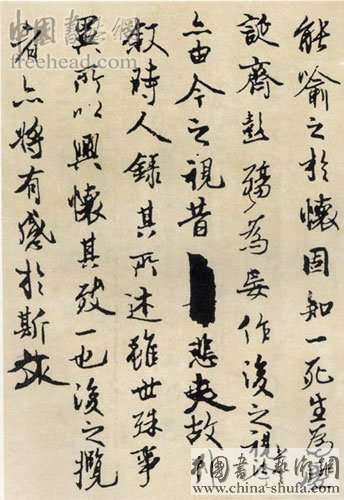 freehead.com
能喻之於懷固知一死生為虛
誕齊彭殤為妄作後之視
亦由今之視昔悲夫故
敘時人錄其所述雖世殊事
異所以興懷其致一也後之攬
者亦將有感於斯文
中國書法藝術網
www.china-shufa.com